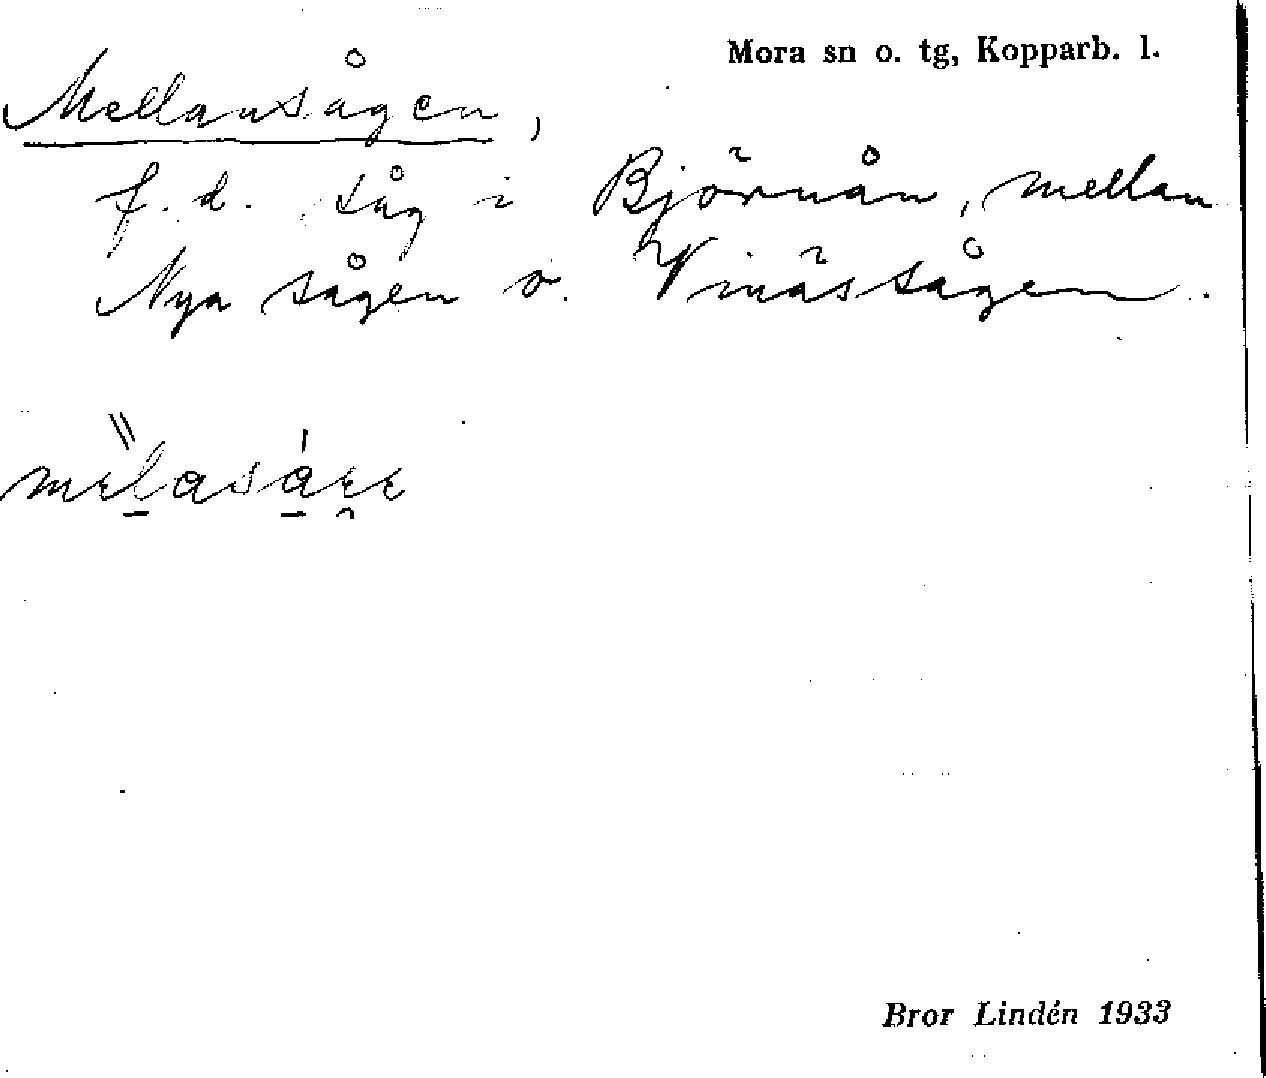 Mora sn o. tg, Kopparb. l.
Mellansågen,
f. d. såg i Björnån, mellan
Nya sågen o. Vinässågen.
Bror Lindén 1933